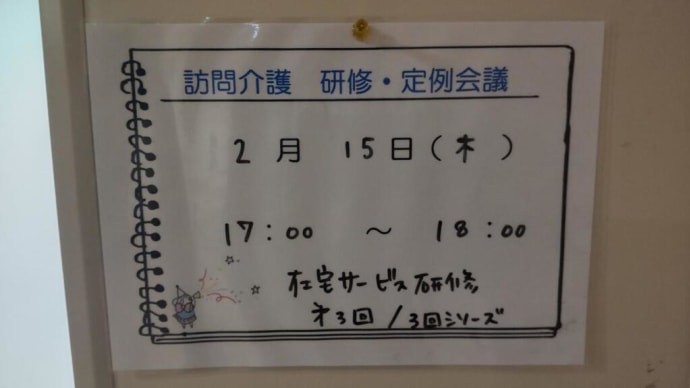 訪問介護 研修・定例会議
2月 15日(木)
17:00 ~ 18:00
在宅サービス研修
才3回/3回シリーズ